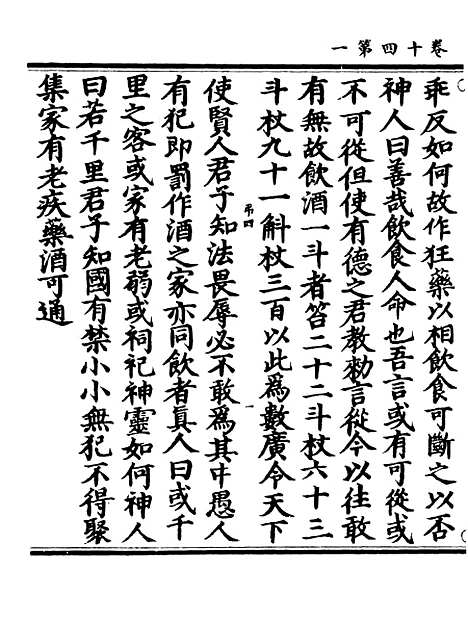 卷十四第一
乖反如何故作狂藥以相飲食可斷之以否
神人曰善哉飲食人命也吾言或有可從或
不可從但使有德之君教勑言從今以往敢
有無故飲酒一斗者笞二十二斗杖六十三
斗杖九十一斛杖三百以此為數廣令天下
使賢人君子知法畏辱必不敢為其中愚人
有犯即罰作酒之家亦同飲者真人曰或千
里之客或家有老弱或祠祀神靈如何神人
曰若千里君子知國有禁小小無犯不得聚
集家有老疾藥酒可通